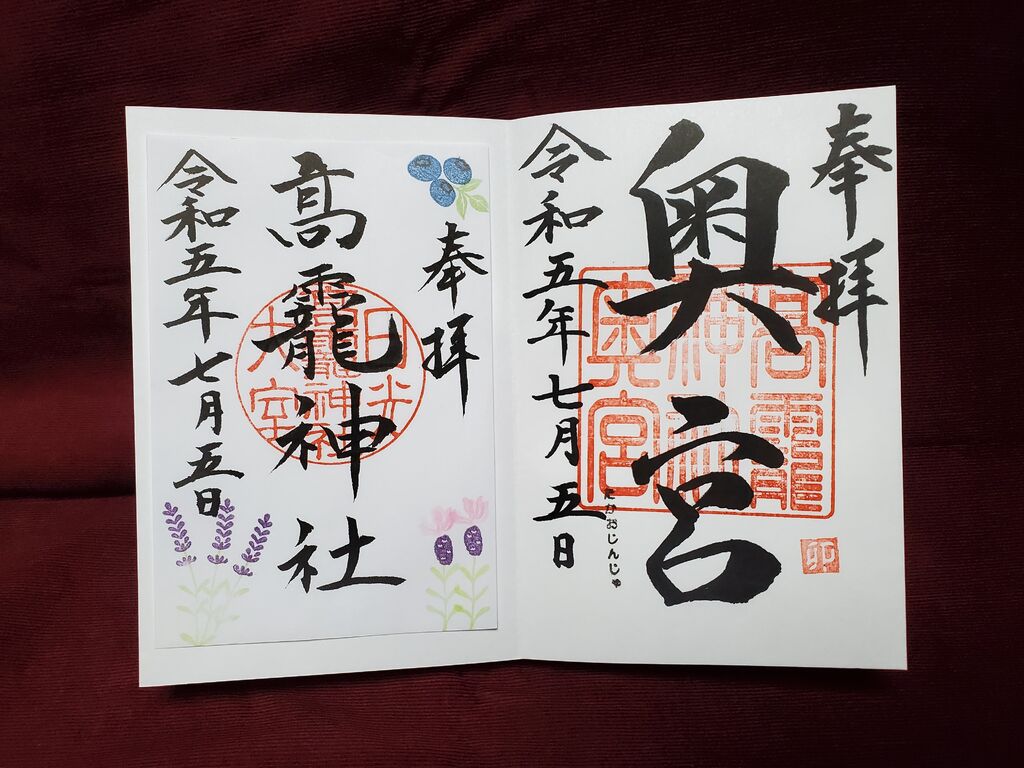 奉拝
奥宮
高龗
神社
奥宮
卯
たかおじんじゃ
令和五年七月五日
奉拝
髙龗神社
日光
大室
令和五年七月五日